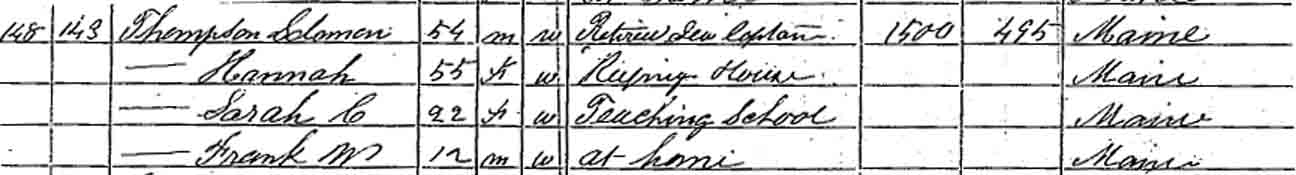 148 143 Thompson Solomon 54 m w Retired Sea Captain 1500 495 Maine
— Hannah 55 f w Keeping House Maine
— Sarah C 22 f w Teaching School Maine
— Frank M 12 m w at home Maine